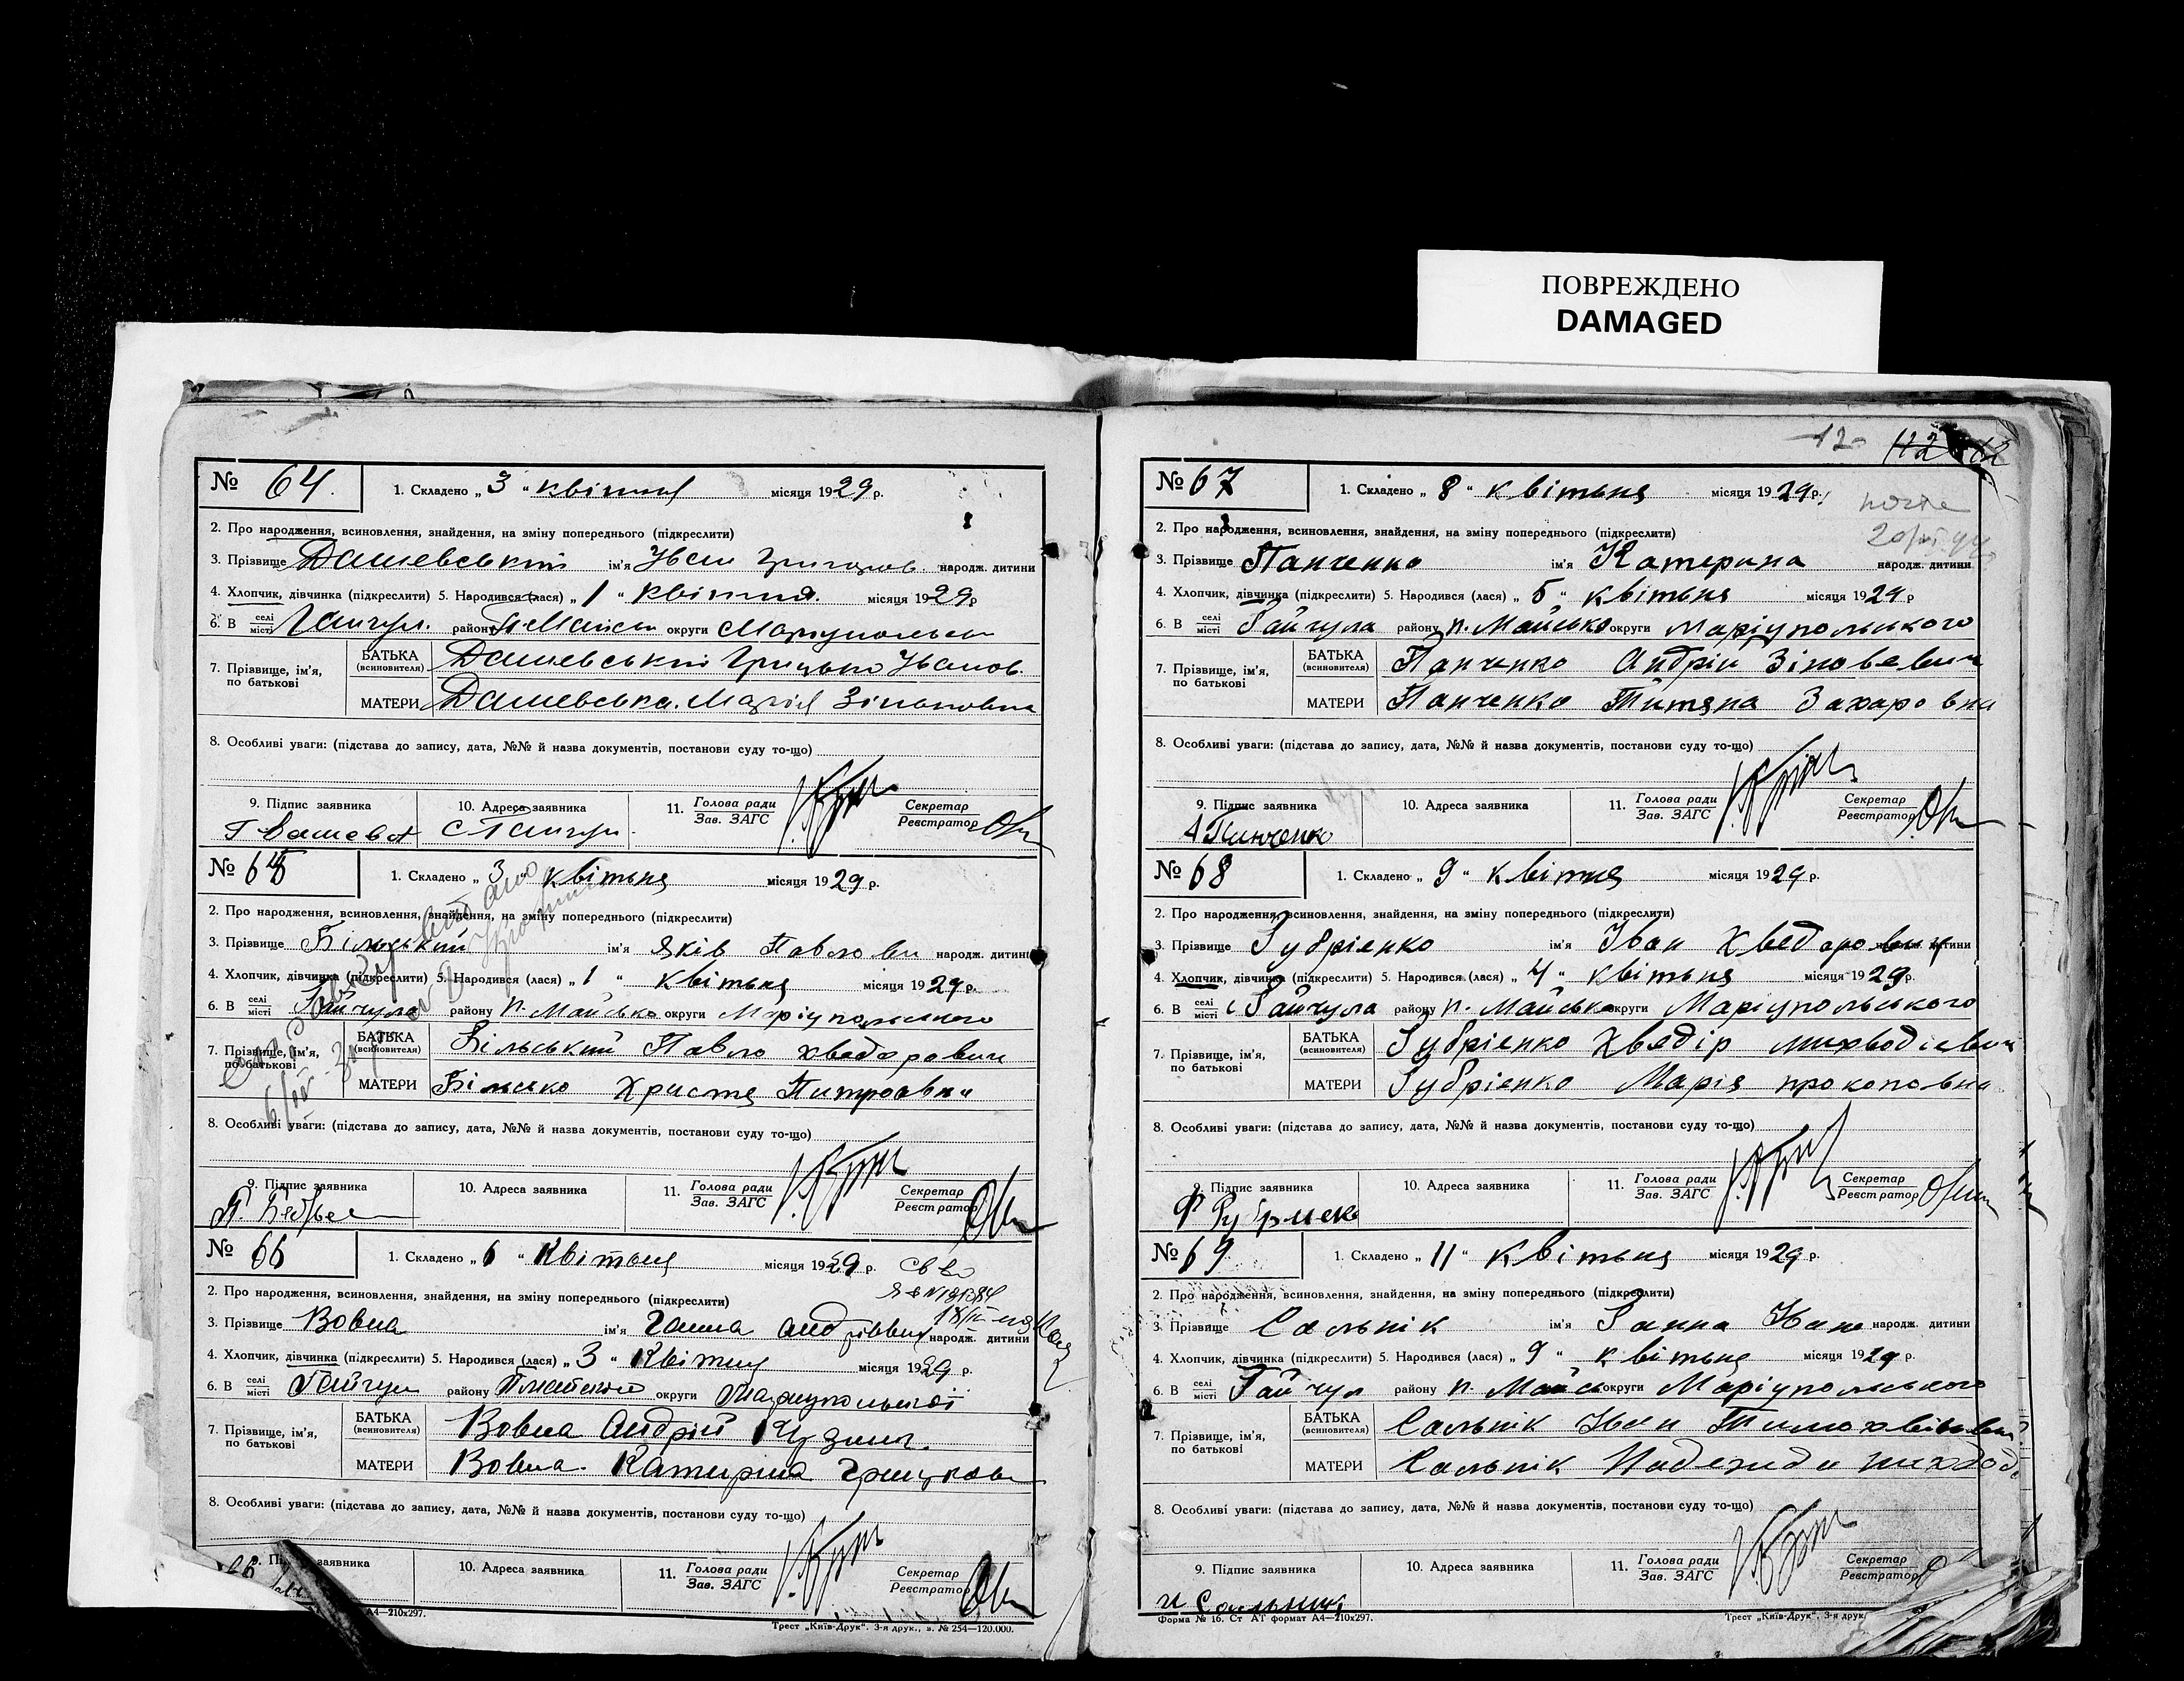 ПОВРЕЖДЕНО
DAMAGED
12
№ 64. 1. Складено „ 3 “ квітня місяця 1929 р.
2. Про народження, всиновлення, знайдення, на зміну попереднього (підкреслити)
3. Прізвище Дашевський ім'я Іван Григоров. народж. дитини
4. Хлопчик, дівчинка (підкреслити) 5. Народився (лася) „ 1 “ квітня. місяця 1929 р
6. В селі місті Гайчул. району П-Майськ округи Маріупольськ
7. Прізвище, ім'я, по батькові
БАТЬКА (всиновителя) Дашевський Грицько Іванов.
МАТЕРИ Дашевська. Марія Зіньковна
8. Особливі уваги: (підстава до запису, дата, №№ й назва документів, постанови суду то-що)
9. Підпис заявника 10. Адреса заявника 11. Голова ради Зав. ЗАГС Секретар Реєстратор
с Гайчул.
№ 65 1. Складено „ 3 “ квітьня місяця 1929 р.
2. Про народження, всиновлення, знайдення, на зміну попереднього (підкреслити)
3. Прізвище Більський ім'я Яків Павлови народж. дитини
4. Хлопчик, дівчинка (підкреслити) 5. Народився (лася) „ 1 “ квітьня місяця 1929 р.
6. В селі місті Гайчула району п. Майсько округи Маріупольського
7. Прізвище, ім'я, по батькові
БАТЬКА (всиновителя) Більський Павло Хведорович
МАТЕРИ Більсько Христя Питровна
8. Особливі уваги: (підстава до запису, дата, №№ й назва документів, постанови суду то-що)
9. Підпис заявника 10. Адреса заявника 11. Голова ради Зав. ЗАГС Секретар Реєстратор
№ 66 1. Складено „ 6 “ Квітьня місяця 1929 р.
2. Про народження, всиновлення, знайдення, на зміну попереднього (підкреслити)
3. Прізвище Вовна ім'я Ганна народж. дитини
4. Хлопчик, дівчинка (підкреслити) 5. Народився (лася) „ 3 “ Квітня місяця 1929 р.
6. В селі місті Гайчул району округи Маріупольської
7. Прізвище, ім'я, по батькові
БАТЬКА (всиновителя) Вовна Андрій
МАТЕРИ Вовна. Катирина Грицуков
8. Особливі уваги: (підстава до запису, дата, №№ й назва документів, постанови суду то-що)
заявника 10. Адреса заявника 11. Голова ради Зав. ЗАГС Секретар Реєстратор
А4—210х297.
Трест „Київ-Друк“. 3-я друк., з. № 254—120.000.
№ 67 1. Складено „ 8 “ квітьня місяця 1929 р.
2. Про народження, всиновлення, знайдення, на зміну попереднього (підкреслити)
3. Прізвище Панченко ім'я Катерина народж. дитини
4. Хлопчик, дівчинка (підкреслити) 5. Народився (лася) „ 5 “ квітьня місяця 1929 р
6. В селі місті Гайчула району п. Майсько округи Маріупольського
7. Прізвище, ім'я, по батькові
БАТЬКА (всиновителя) Панченко Андрій Зіновевич
МАТЕРИ Панченко Титяна Захаровна
8. Особливі уваги: (підстава до запису, дата, №№ й назва документів, постанови суду то-що)
9. Підпис заявника 10. Адреса заявника 11. Голова ради Зав. ЗАГС Секретар Реєстратор
А Панченко
№ 68 1. Складено „ 9 “ квітня місяця 1929 р.
2. Про народження, всиновлення, знайдення, на зміну попереднього (підкреслити)
3. Прізвище Зубрієнко ім'я Іван Хведорович народж. дитини
4. Хлопчик, дівчинка (підкреслити) 5. Народився (лася) „ 4 “ квітьня місяця 1929 р.
6. В селі місті с Гайчула району п. Майсько округи Маріупольського
7. Прізвище, ім'я, по батькові
БАТЬКА (всиновителя) Зубрієнко Хведір
МАТЕРИ Зубрієнко Марія прокоповна
8. Особливі уваги: (підстава до запису, дата, №№ й назва документів, постанови суду то-що)
9. Підпис заявника 10. Адреса заявника 11. Голова ради Зав. ЗАГС Секретар Реєстратор
№ 69 1. Складено „ 11 “ квітьня місяця 1929 р.
2. Про народження, всиновлення, знайдення, на зміну попереднього (підкреслити)
3. Прізвище Сальнік ім'я Ганна Іван народж. дитини
4. Хлопчик, дівчинка (підкреслити) 5. Народився (лася) „ 9 “ квітьня місяця 1929 р.
6. В селі місті Гайчул району п. Майсь округи Маріупольського
7. Прізвище, ім'я, по батькові
БАТЬКА (всиновителя) Сальнік Іван
МАТЕРИ Сальнік Надежда
8. Особливі уваги: (підстава до запису, дата, №№ й назва документів, постанови суду то-що)
9. Підпис заявника 10. Адреса заявника 11. Голова ради Зав. ЗАГС Секретар Реєстратор
и Сальник
Форма № 16. Ст АТ формат А4—210х297.
Трест „Київ-Друк“. 3-я друк